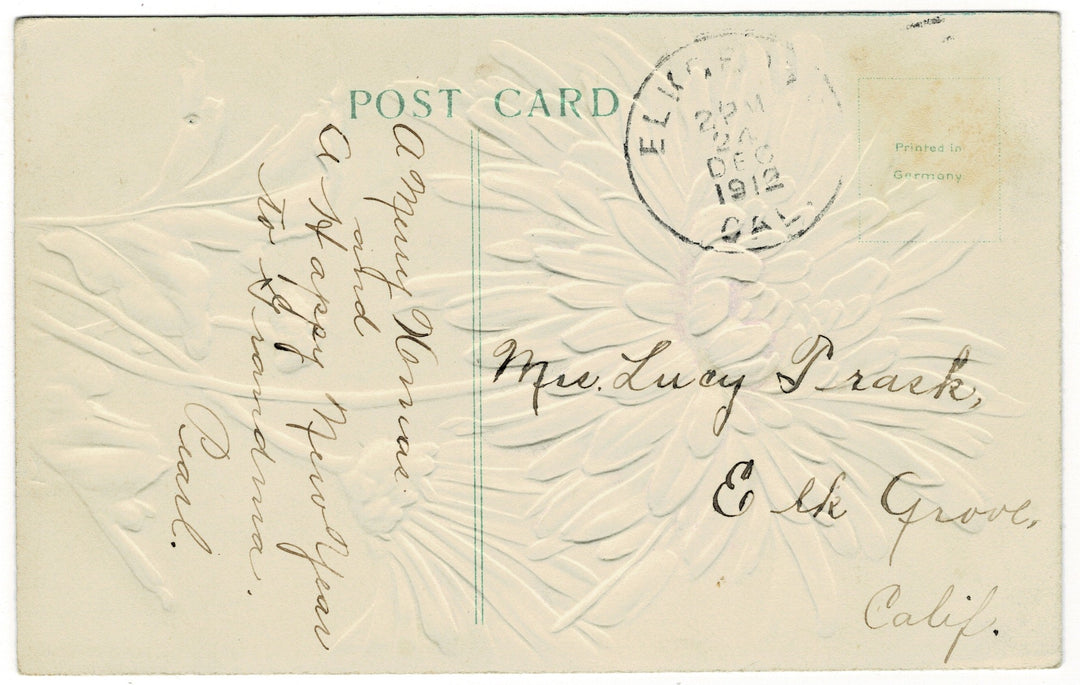 POST CARD
A Merry Xmas.
and
A Happy New Year
to Grandma.
Pearl.
ELK
2 PM
24
DEC
1912
CAL.
Printed in
Germany
Mrs. Lucy Trask,
Elk Grove,
Calif.